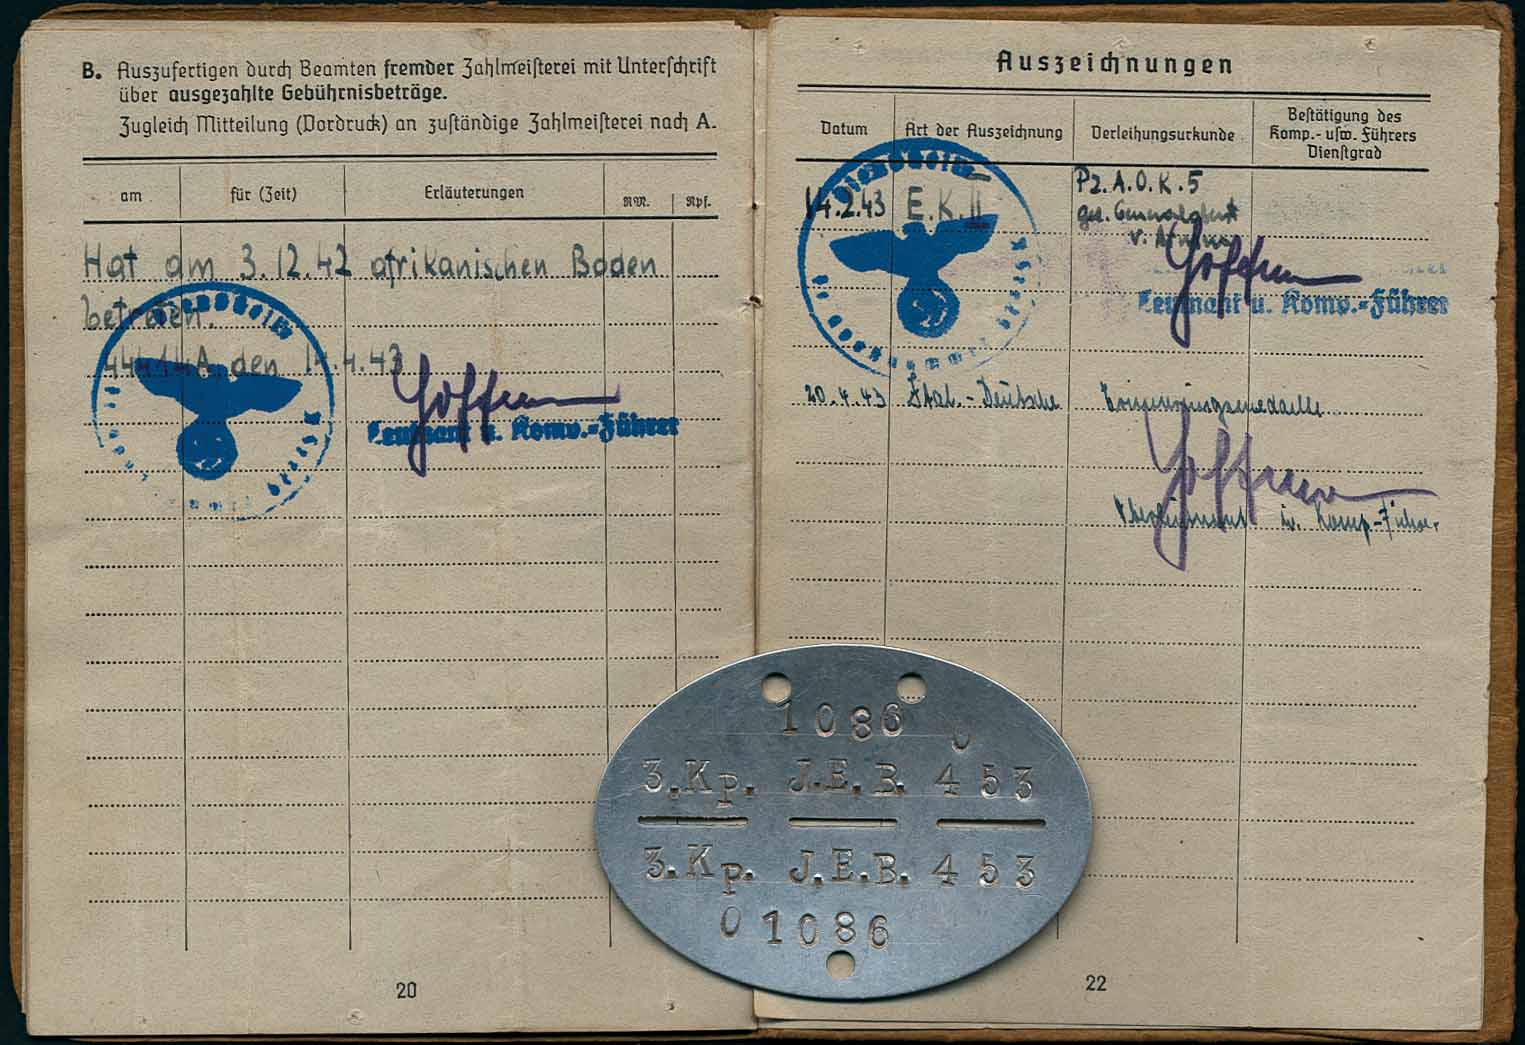 B. Auszufertigen durch Beamten fremder Zahlmeisterei mit Unterschrift
über ausgezahlte Gebührnisbeträge.
Zugleich Mitteilung (Vordruck) an zuständige Zahlmeisterei nach A.
am
für (Zeit)
Erläuterungen
RM.
Rpf.
Hat am 3.12.42 afrikanischen Boden
betreten.
44414A, den 14.4.43
Leutnant u. Komp.-Führer
20
Auszeichnungen
Datum
Art der Auszeichnung
Verleihungsurkunde
Bestätigung des
Komp.- usw. Führers
Dienstgrad
14.2.43 E.K.II
Pz. A.O.K. 5
gez. Generalobfst
v. Arnim
Leutnant u. Komp.-Führer
20.4.43 Ital.-Deutsche Erinnerungsmedaille
Oberleutnant u. Komp.-Führer
22
1086
O
3.Kp. J.E.B. 453
3.Kp. J.E.B. 453
O 1086